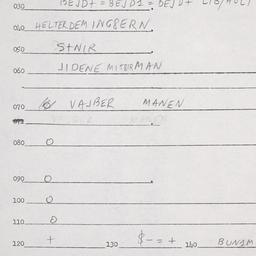 030 BEJD+ = BEJD1 = BEJD+
040 HELTERDEM INGBERN
050 S+NIR
060 JIDENE MITURMAN
070 VAJBER MANEN
080 O
090 O
100 O
110 O
120 + 130 $- = + 140 BUNIM